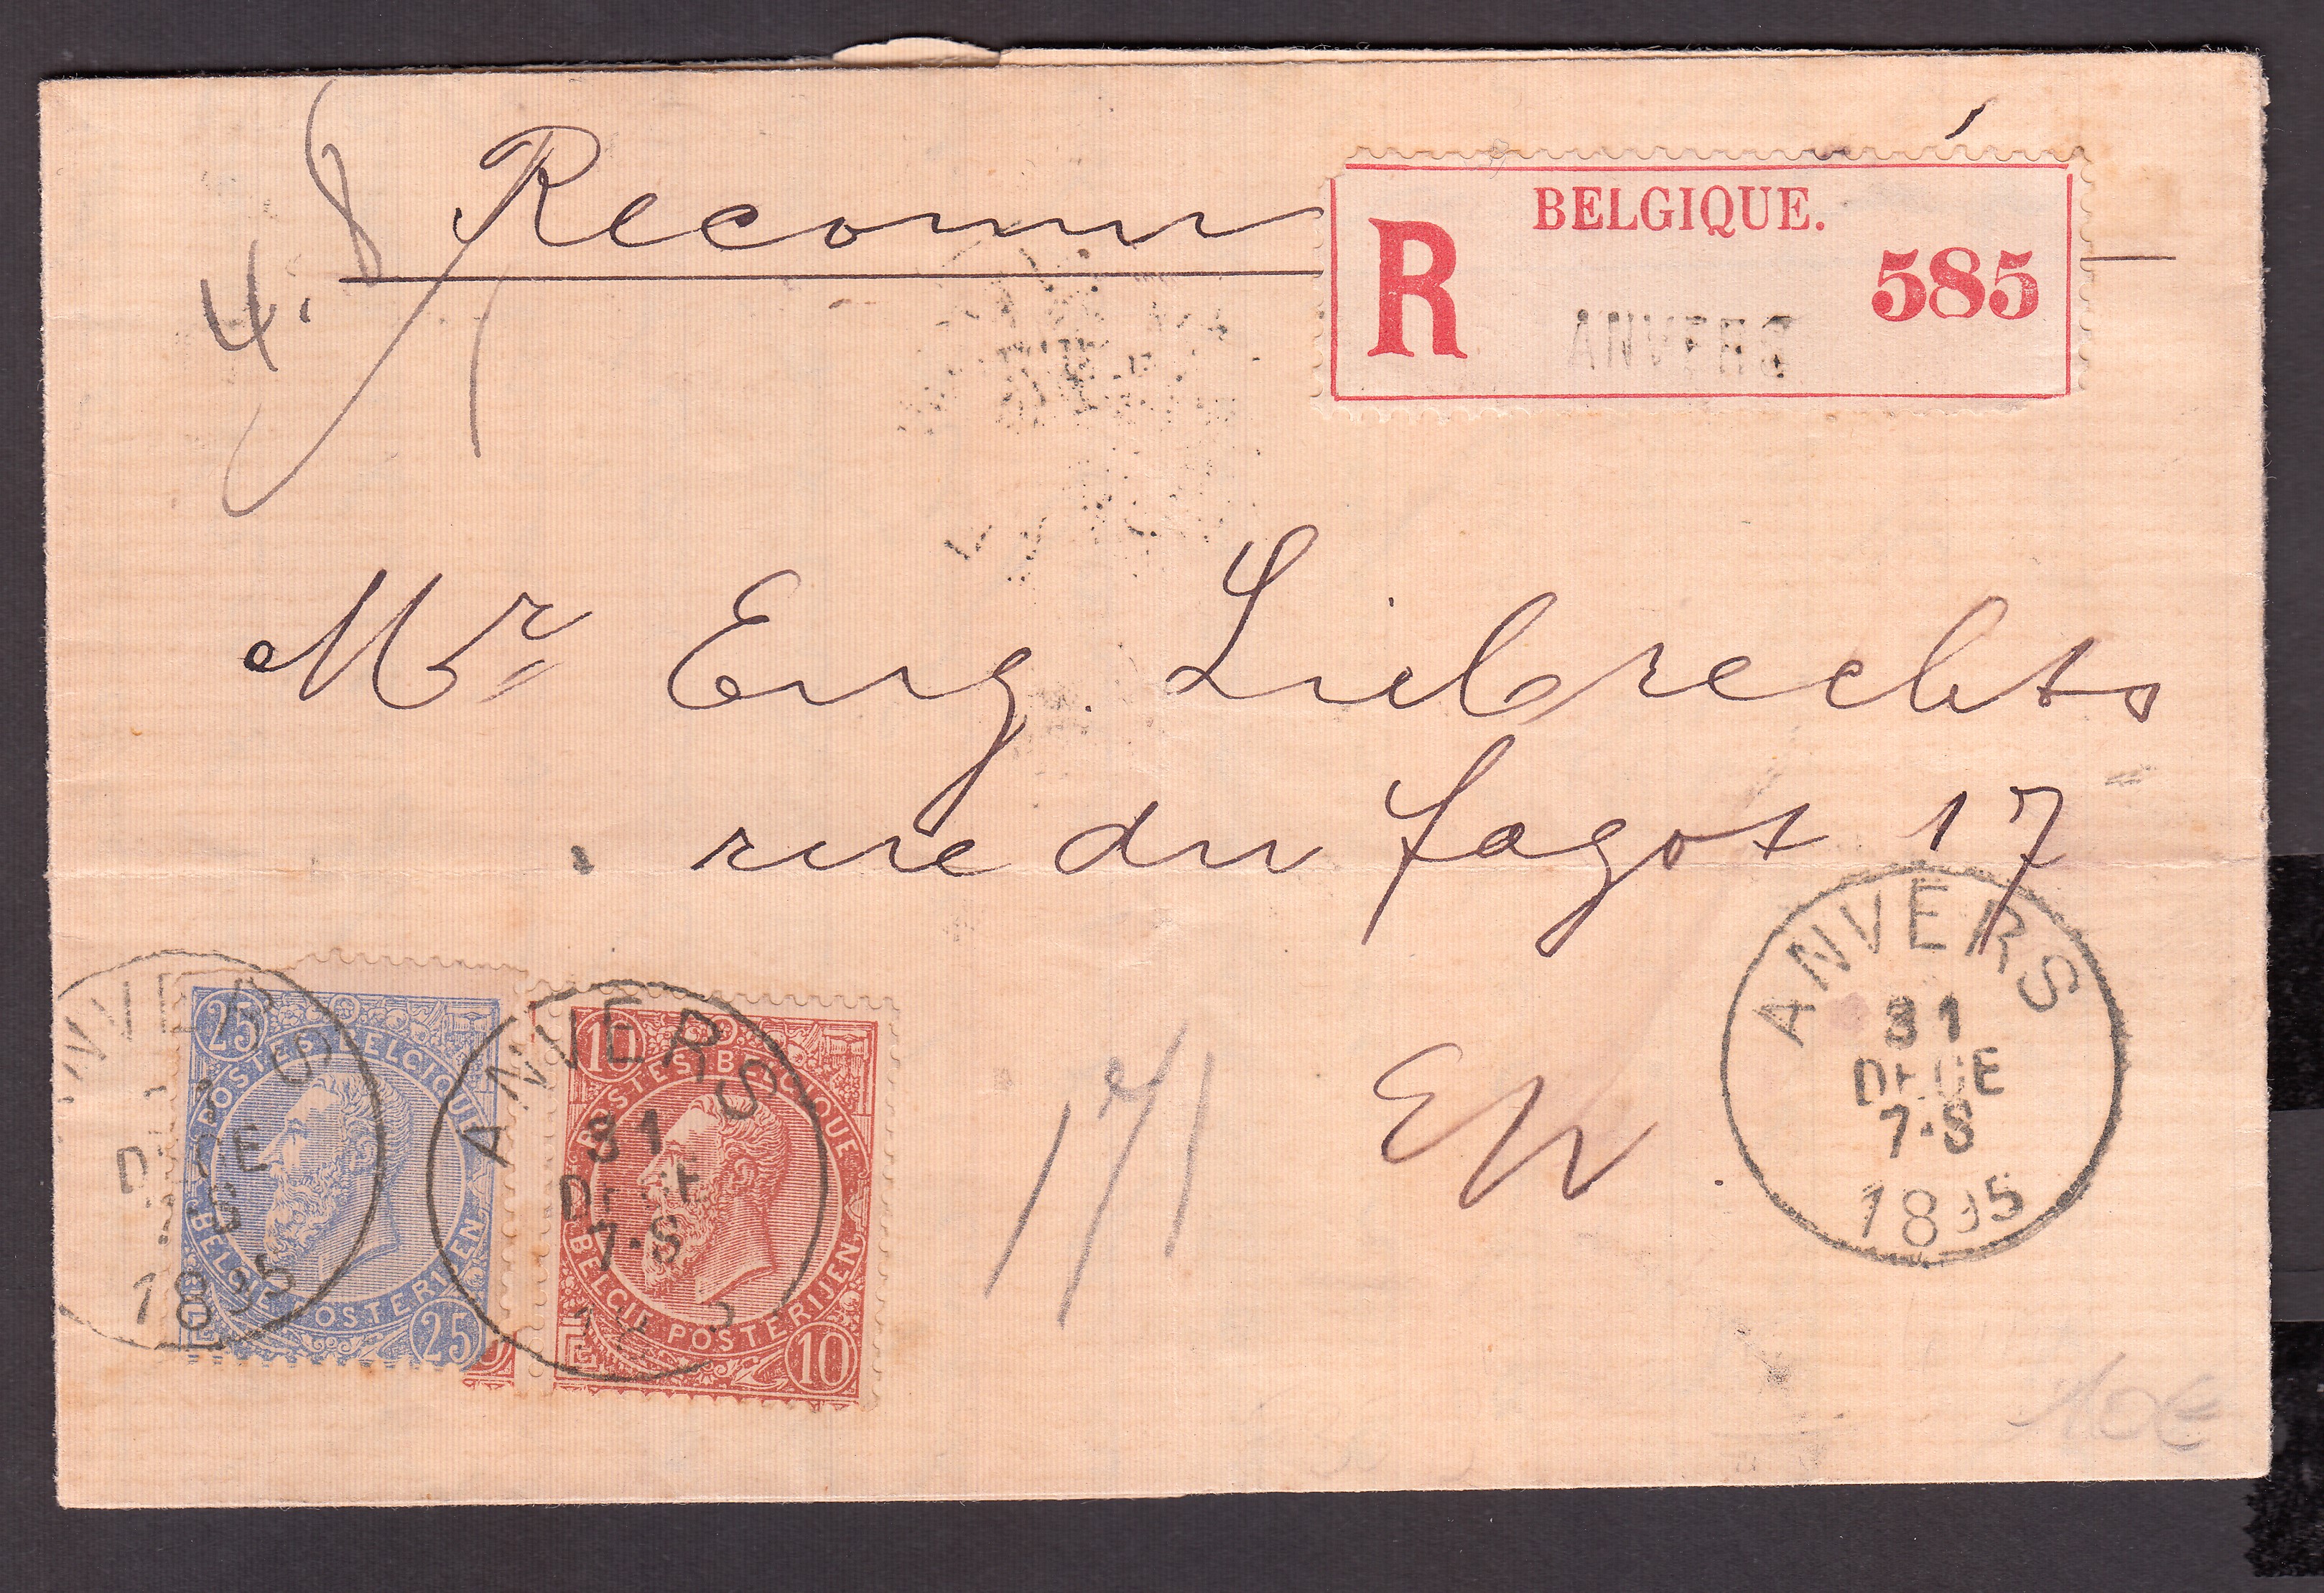 Recomm
BELGIQUE.
R
585
ANVERS
4.
Mr Eug. Liebrechts
rue du fagot 17
EV.
ANVERS
31
DECE
7-S
1895
ANVERS
DECE
-S
1895
25
POSTES BELGIQUE
BELGIE POSTERIJEN
25
ANVERS
31
DECE
7-S
10
POSTES BELGIQUE
BELGIE POSTERIJEN
10
10€